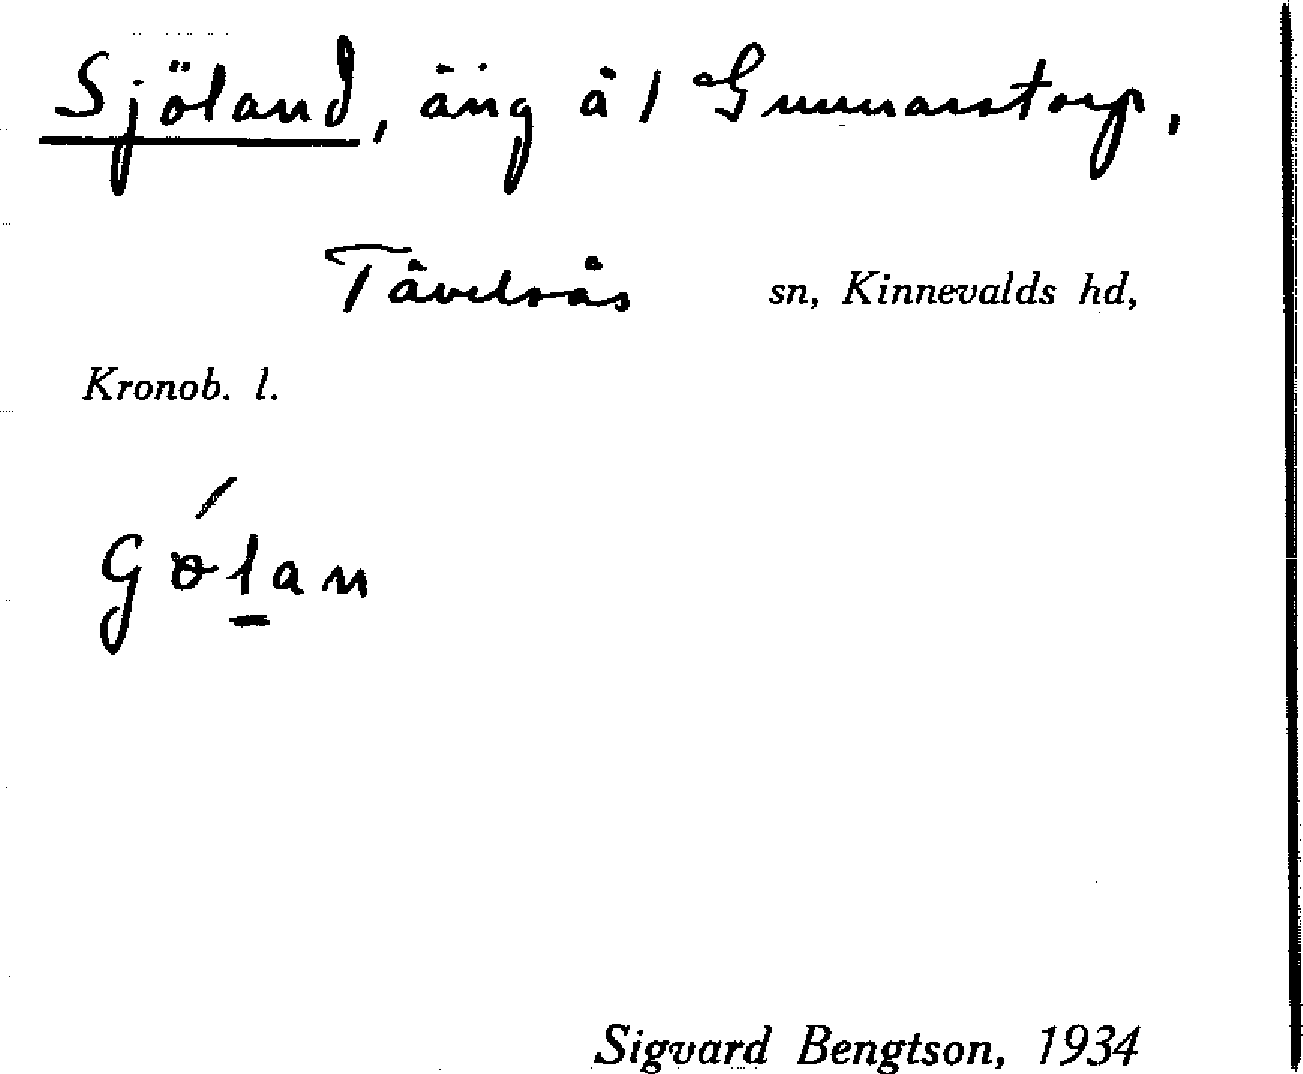 Sjöland, äng å 1 Gunnarstorp,
Tävelsås sn, Kinnevalds hd,
Kronob. l.
Sigvard Bengtson, 1934